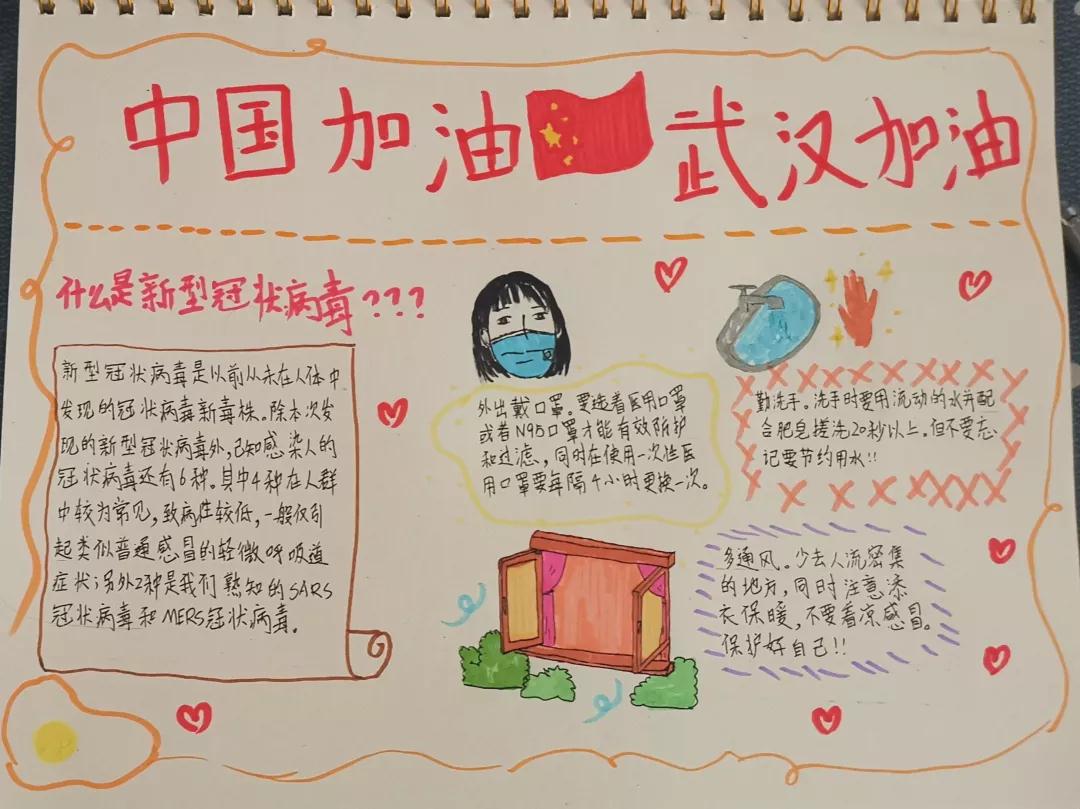 中国加油 武汉加油
什么是新型冠状病毒???
新型冠状病毒是以前从未在人体中
发现的冠状病毒新毒株。除本次发
现的新型冠状病毒外,已知感染人的
冠状病毒还有6种。其中4种在人群
中较为常见,致病性较低,一般仅引
起类似普通感冒的轻微呼吸道
症状;另外2种是我们熟知的SARS
冠状病毒和MERS冠状病毒。
外出戴口罩。要选着医用口罩
或者N95口罩才能有效防护
和过滤,同时在使用一次性医
用口罩要每隔4小时更换一次。
勤洗手。洗手时要用流动的水并配
合肥皂搓洗20秒以上。但不要忘
记要节约用水!!
多通风。少去人流密集
的地方,同时注意添
衣保暖,不要着凉感冒。
保护好自己!!